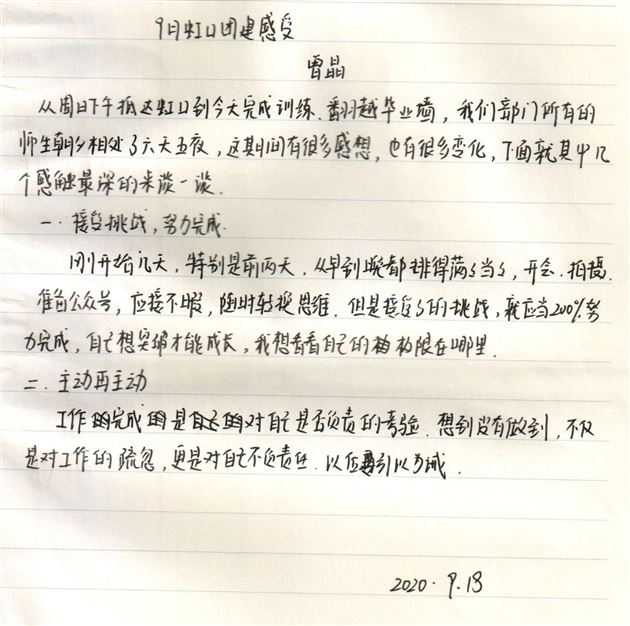 9月虹口团建感受
曾晶
从周日下午抵达虹口到今天完成训练、翻越毕业墙，我们部门所有的
师生朝夕相处了六天五夜，这期间有很多感想，也有很多变化，下面就其中几
个感触最深的来谈一谈.
一. 接受挑战，努力完成.
刚开始几天，特别是前两天，从早到晚都排得满满当当，开会、拍摄.
准备公众号，应接不暇，随时转换思维. 但是接受了的挑战，就应当200%努
力完成，自己想突破才能成长，我想看看自己的极限在哪里.
二. 主动再主动
工作的完成是对自己是否负责的考验. 想到没有做到，不仅
是对工作的疏忽，更是对自己不负责任. 以后要引以为诫.
2020. 9.18